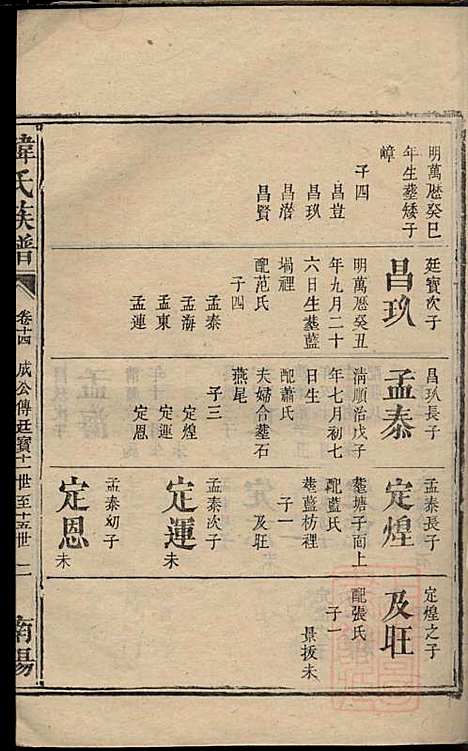 明萬厯癸巳
年生塟矮子
嶂
子四
昌荳
昌玖
昌潛
昌賢
廷寳次子
昌玖
明萬厯癸丑
年九月二十
六日生塟藍
塥裡
配范氏
子四
孟泰
孟海
孟東
孟連
昌玖長子
孟泰
清順治戊子
年七月初七
日生
配蕭氏
夫婦合塟石
燕尾
子三
定煌
定運
定恩
孟泰長子
定煌
塟塘子面上
配藍氏
塟藍枋裡
子一
及旺
孟泰次子
定運
未
孟泰幼子
定恩
未
定煌之子
及旺
配張氏
子一
景拔未
氏族譜
卷十四
成公傳廷寳十世至十五世
二
南陽